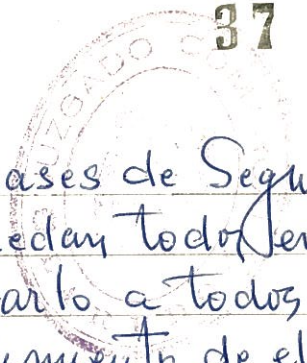 37
UZGADO
ases de Segu
edan todos en
arlo a todos
de